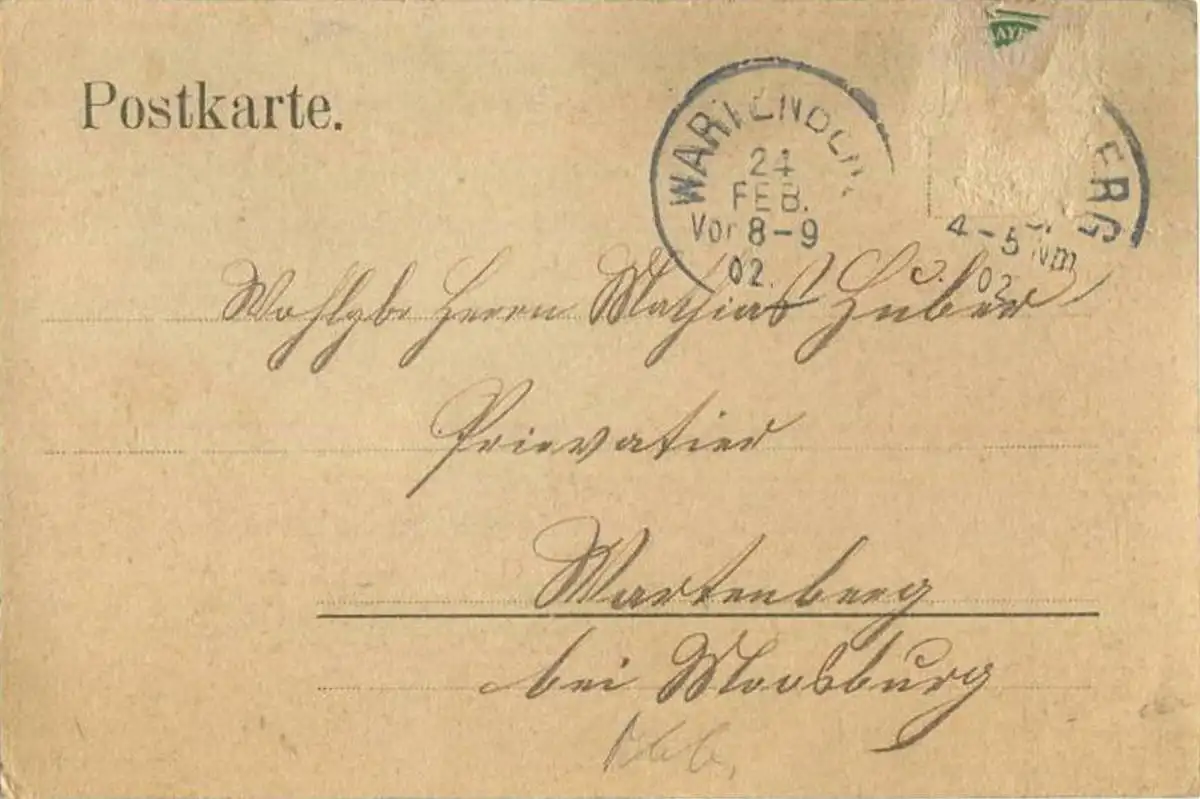 Postkarte.
BAYE
WARTENBERG
24
FEB.
Vor 8-9
02.
ERG
4-5 Nm
02
Wohlgb Herrn Mathias Huber
Prievatier
Wartenberg
bei Moosburg